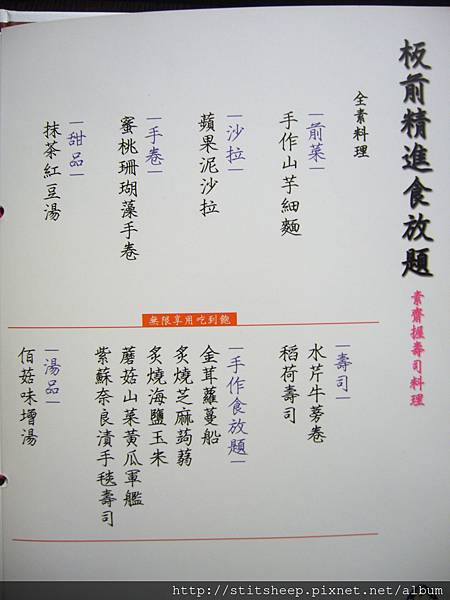 板前精進食放題
素齋握壽司料理
全素料理
|前菜|
手作山芋細麵
|沙拉|
蘋果泥沙拉
|手卷|
蜜桃珊瑚藻手卷
|甜品|
抹茶紅豆湯
無限享用吃到飽
|壽司|
水芹牛蒡卷
稻荷壽司
|手作食放題|
金茸蘿蔓船
炙燒芝麻蒟蒻
炙燒海鹽玉米
蘑菇山菜黃瓜軍艦
紫蘇奈良漬手毬壽司
|湯品|
佰菇味增湯
http://stitsheep.pixnet.net/album